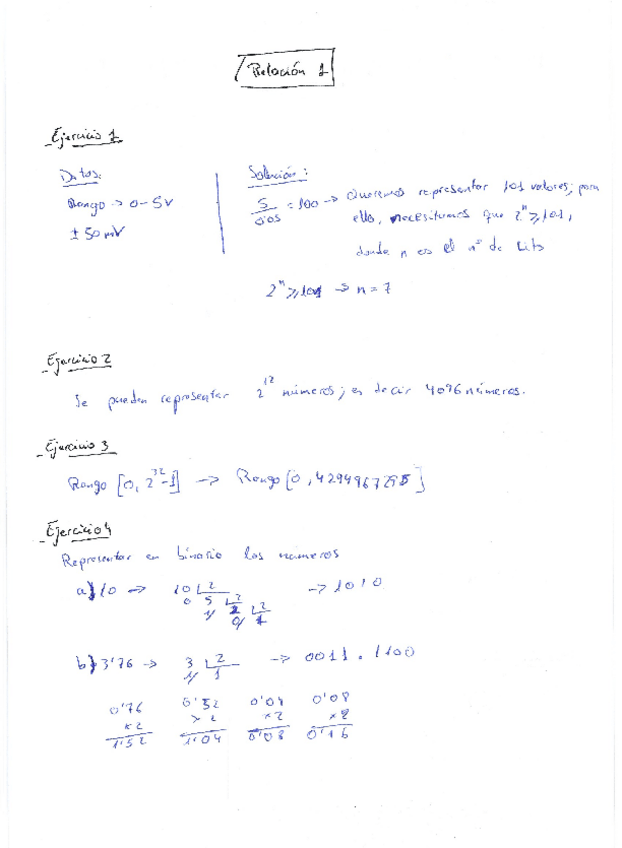 Relación 1
Ejercicio 1
Datos:
Rango → 0-5V
± 50 mV
Solución:
5/0'05 = 100 → Queremos representar 101 valores; para
ello, necesitamos que 2^n ≥ 101,
donde n es el nº de bits
2^n ≥ 101 → n = 7
Ejercicio 2
Se pueden representar 2^12 números; es decir 4096 números.
Ejercicio 3
Rango [0, 2^32-1] → Rango [0, 4294967295]
Ejercicio 4
Representar en binario los números
a) 10 → 10 2 → 1010
0 5 2
1 2 2
0 1
b) 3'76 → 3 2 → 0011.1100
1 1
0'76 0'52 0'04 0'08
×2 ×2 ×2 ×2
1'52 1'04 0'08 0'16